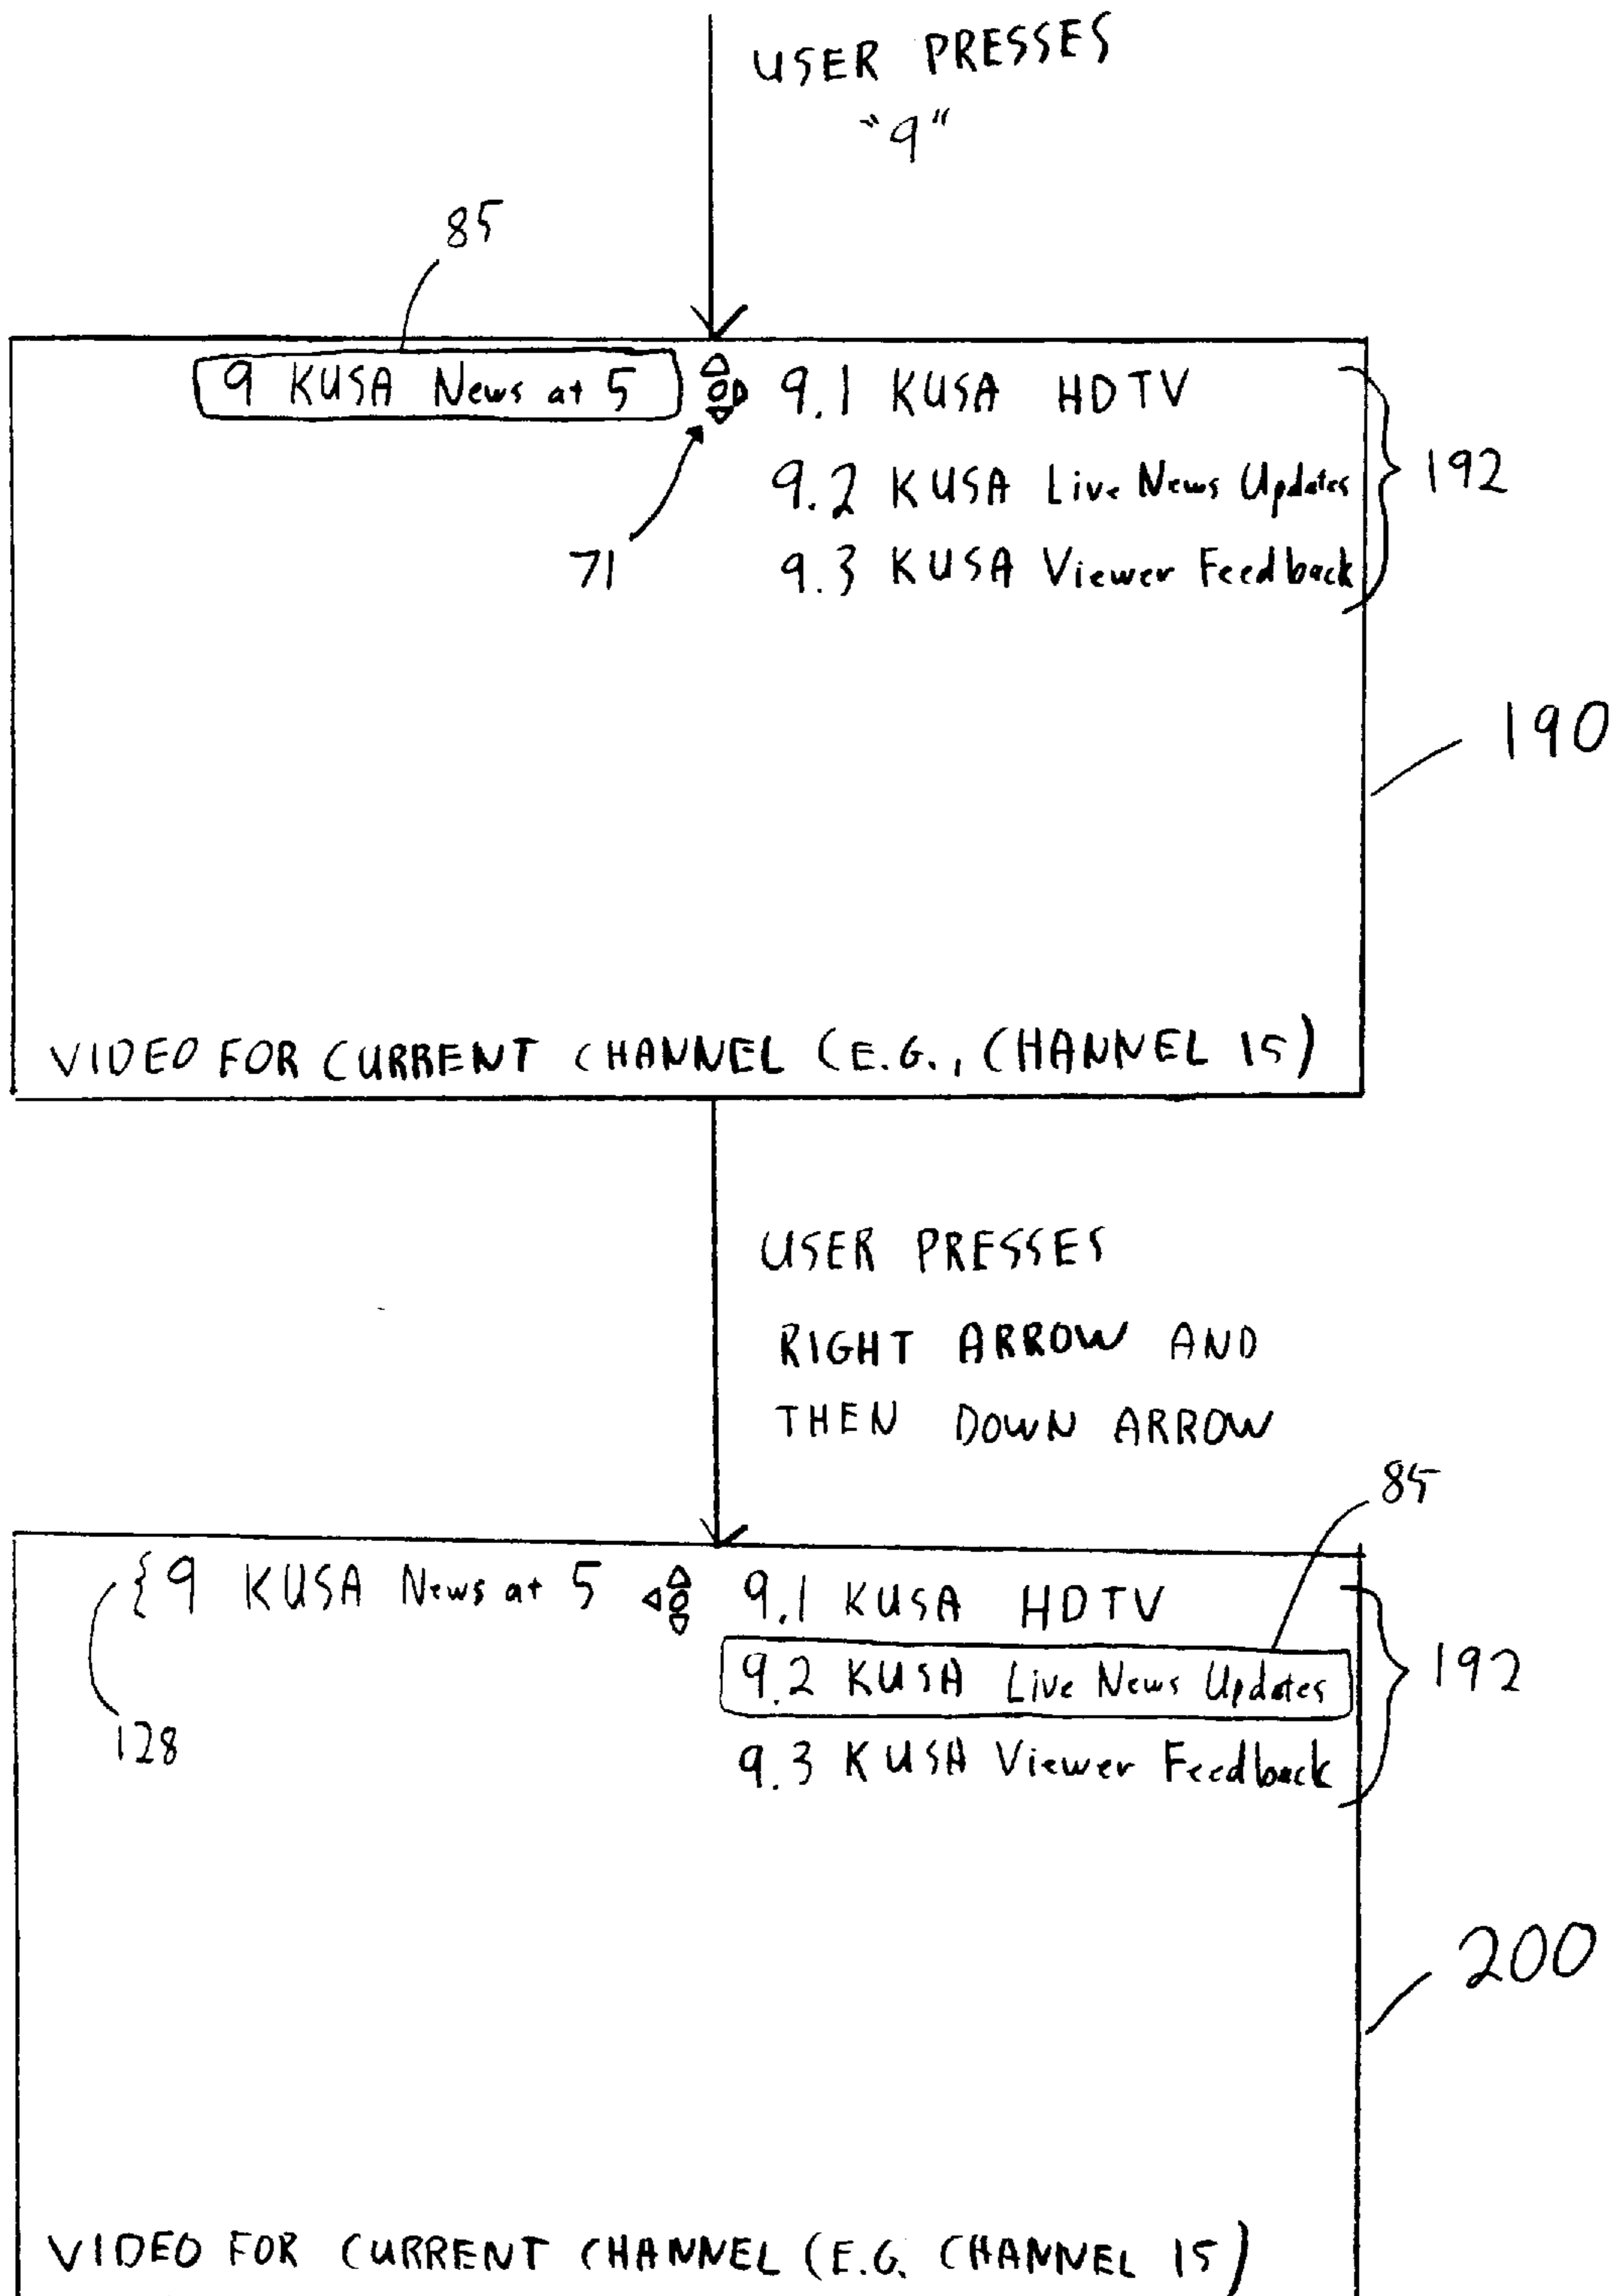 USER PRESSES
"9"
85
9 KUSA News at 5 9.1 KUSA HDTV
9.2 KUSA Live News Updates
192
71
9.3 KUSA Viewer Feedback
190
VIDEO FOR CURRENT CHANNEL (E.G., CHANNEL 15)
USER PRESSES
RIGHT ARROW AND
THEN DOWN ARROW
85
{9 KUSA News at 5 9.1 KUSA HDTV
9.2 KUSA Live News Updates
192
128
9.3 KUSA Viewer Feedback
200
VIDEO FOR CURRENT CHANNEL (E.G. CHANNEL 15)